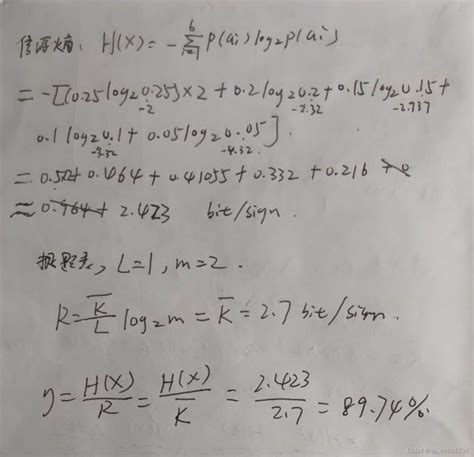 信源熵: H(X) = -∑_{i=1}^{6} p(ai) log₂ p(ai)
= -[(0.25 log₂ 0.25)×2 + 0.2 log₂ 0.2 + 0.15 log₂ 0.15 +
-2 -2.32 -2.737
0.1 log₂ 0.1 + 0.05 log₂ 0.05].
-3.32 -4.32
= 0.5×2 + 0.464 + 0.41055 + 0.332 + 0.216
≈ 2.423 bit/sign.
L=1, m=2.
R = K̅/L log₂ m = K̅ = 2.7 bit/sign.
η = H(X)/R = H(X)/K̅ = 2.423/2.7 = 89.74%.